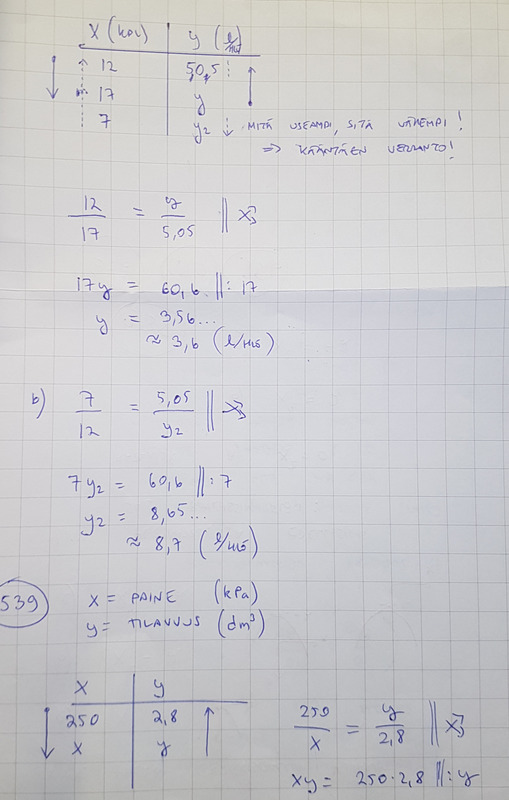 x (kpl) y (l/hlö)
12 50,5
17 y
7 y₂ MITÄ USEAMPI, SITÄ VÄHEMPI!
⇒ KÄÄNTÄEN VERRANTO!
12/17 = y/5,05 ||
17y = 60,6 ||: 17
y = 3,56...
≈ 3,6 (l/HLÖ)
b) 7/12 = 5,05/y₂ ||
7y₂ = 60,6 ||: 7
y₂ = 8,65...
≈ 8,7 (l/HLÖ)
539 x = PAINE (kPa)
y = TILAVUUS (dm³)
x y
250 2,8
x y
250/x = y/2,8 ||
xy = 250·2,8 ||: y